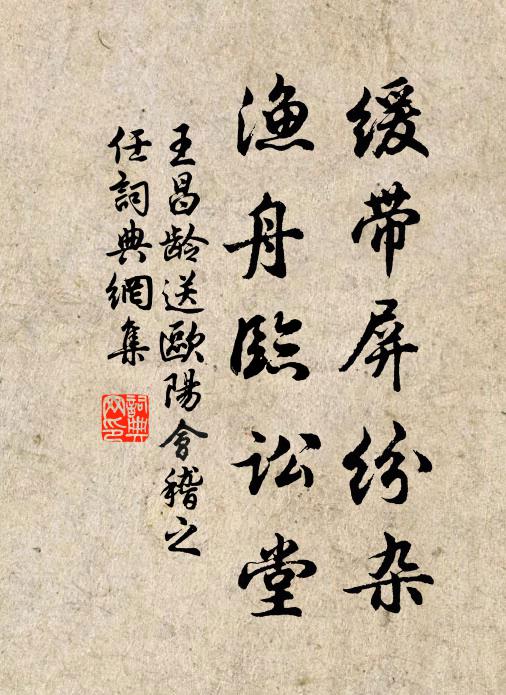 缓带屏纷杂
渔舟临讼堂
王昌龄送歐陽會稽之
任詞典網集
詞典
网印